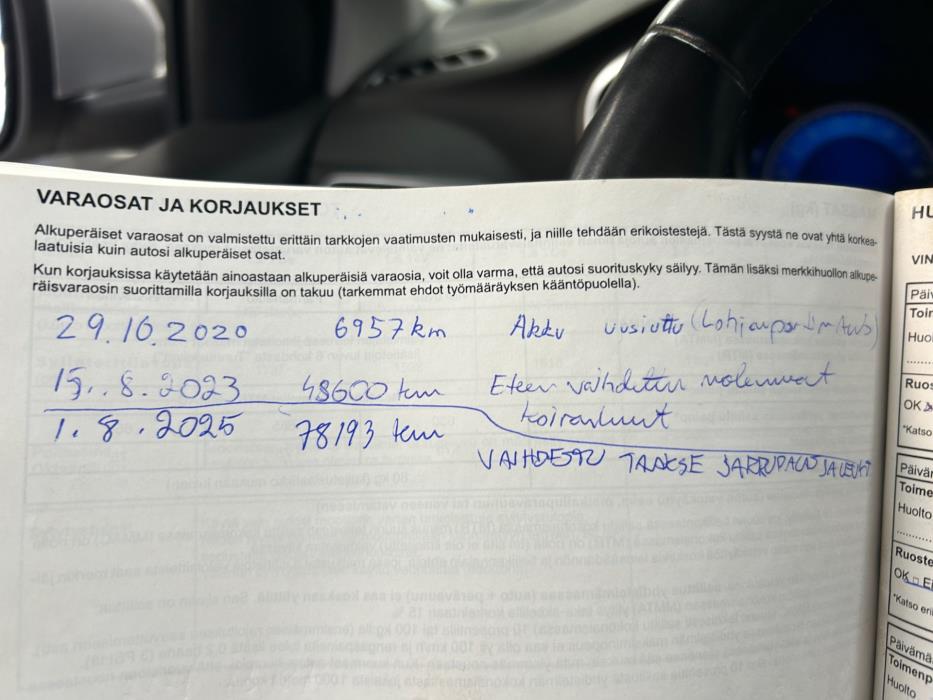 VARAOSAT JA KORJAUKSET
Alkuperäiset varaosat on valmistettu erittäin tarkkojen vaatimusten mukaisesti, ja niille tehdään erikoistestejä. Tästä syystä ne ovat yhtä korkea-
laatuisia kuin autosi alkuperäiset osat.
Kun korjauksissa käytetään ainoastaan alkuperäisiä varaosia, voit olla varma, että autosi suorituskyky säilyy. Tämän lisäksi merkkihuollon alkupe-
räisvaraosin suorittamilla korjauksilla on takuu (tarkemmat ehdot työmääräyksen kääntöpuolella).
29.10.2020 6957 km Akku uusiuttu
15.8.2023 48600 km Eteen vaihdettu molemmat
koiranluut
1.8.2025 78193 km
VAIHDETTU TAAKSE
HU
VIN
Päiv
Toim
Huol
Ruos
OK
*Katso
Päivär
Toime
Huolto
Ruoste
OK Ei
*Katso eri
Päivämä
Toimenp
Huolto